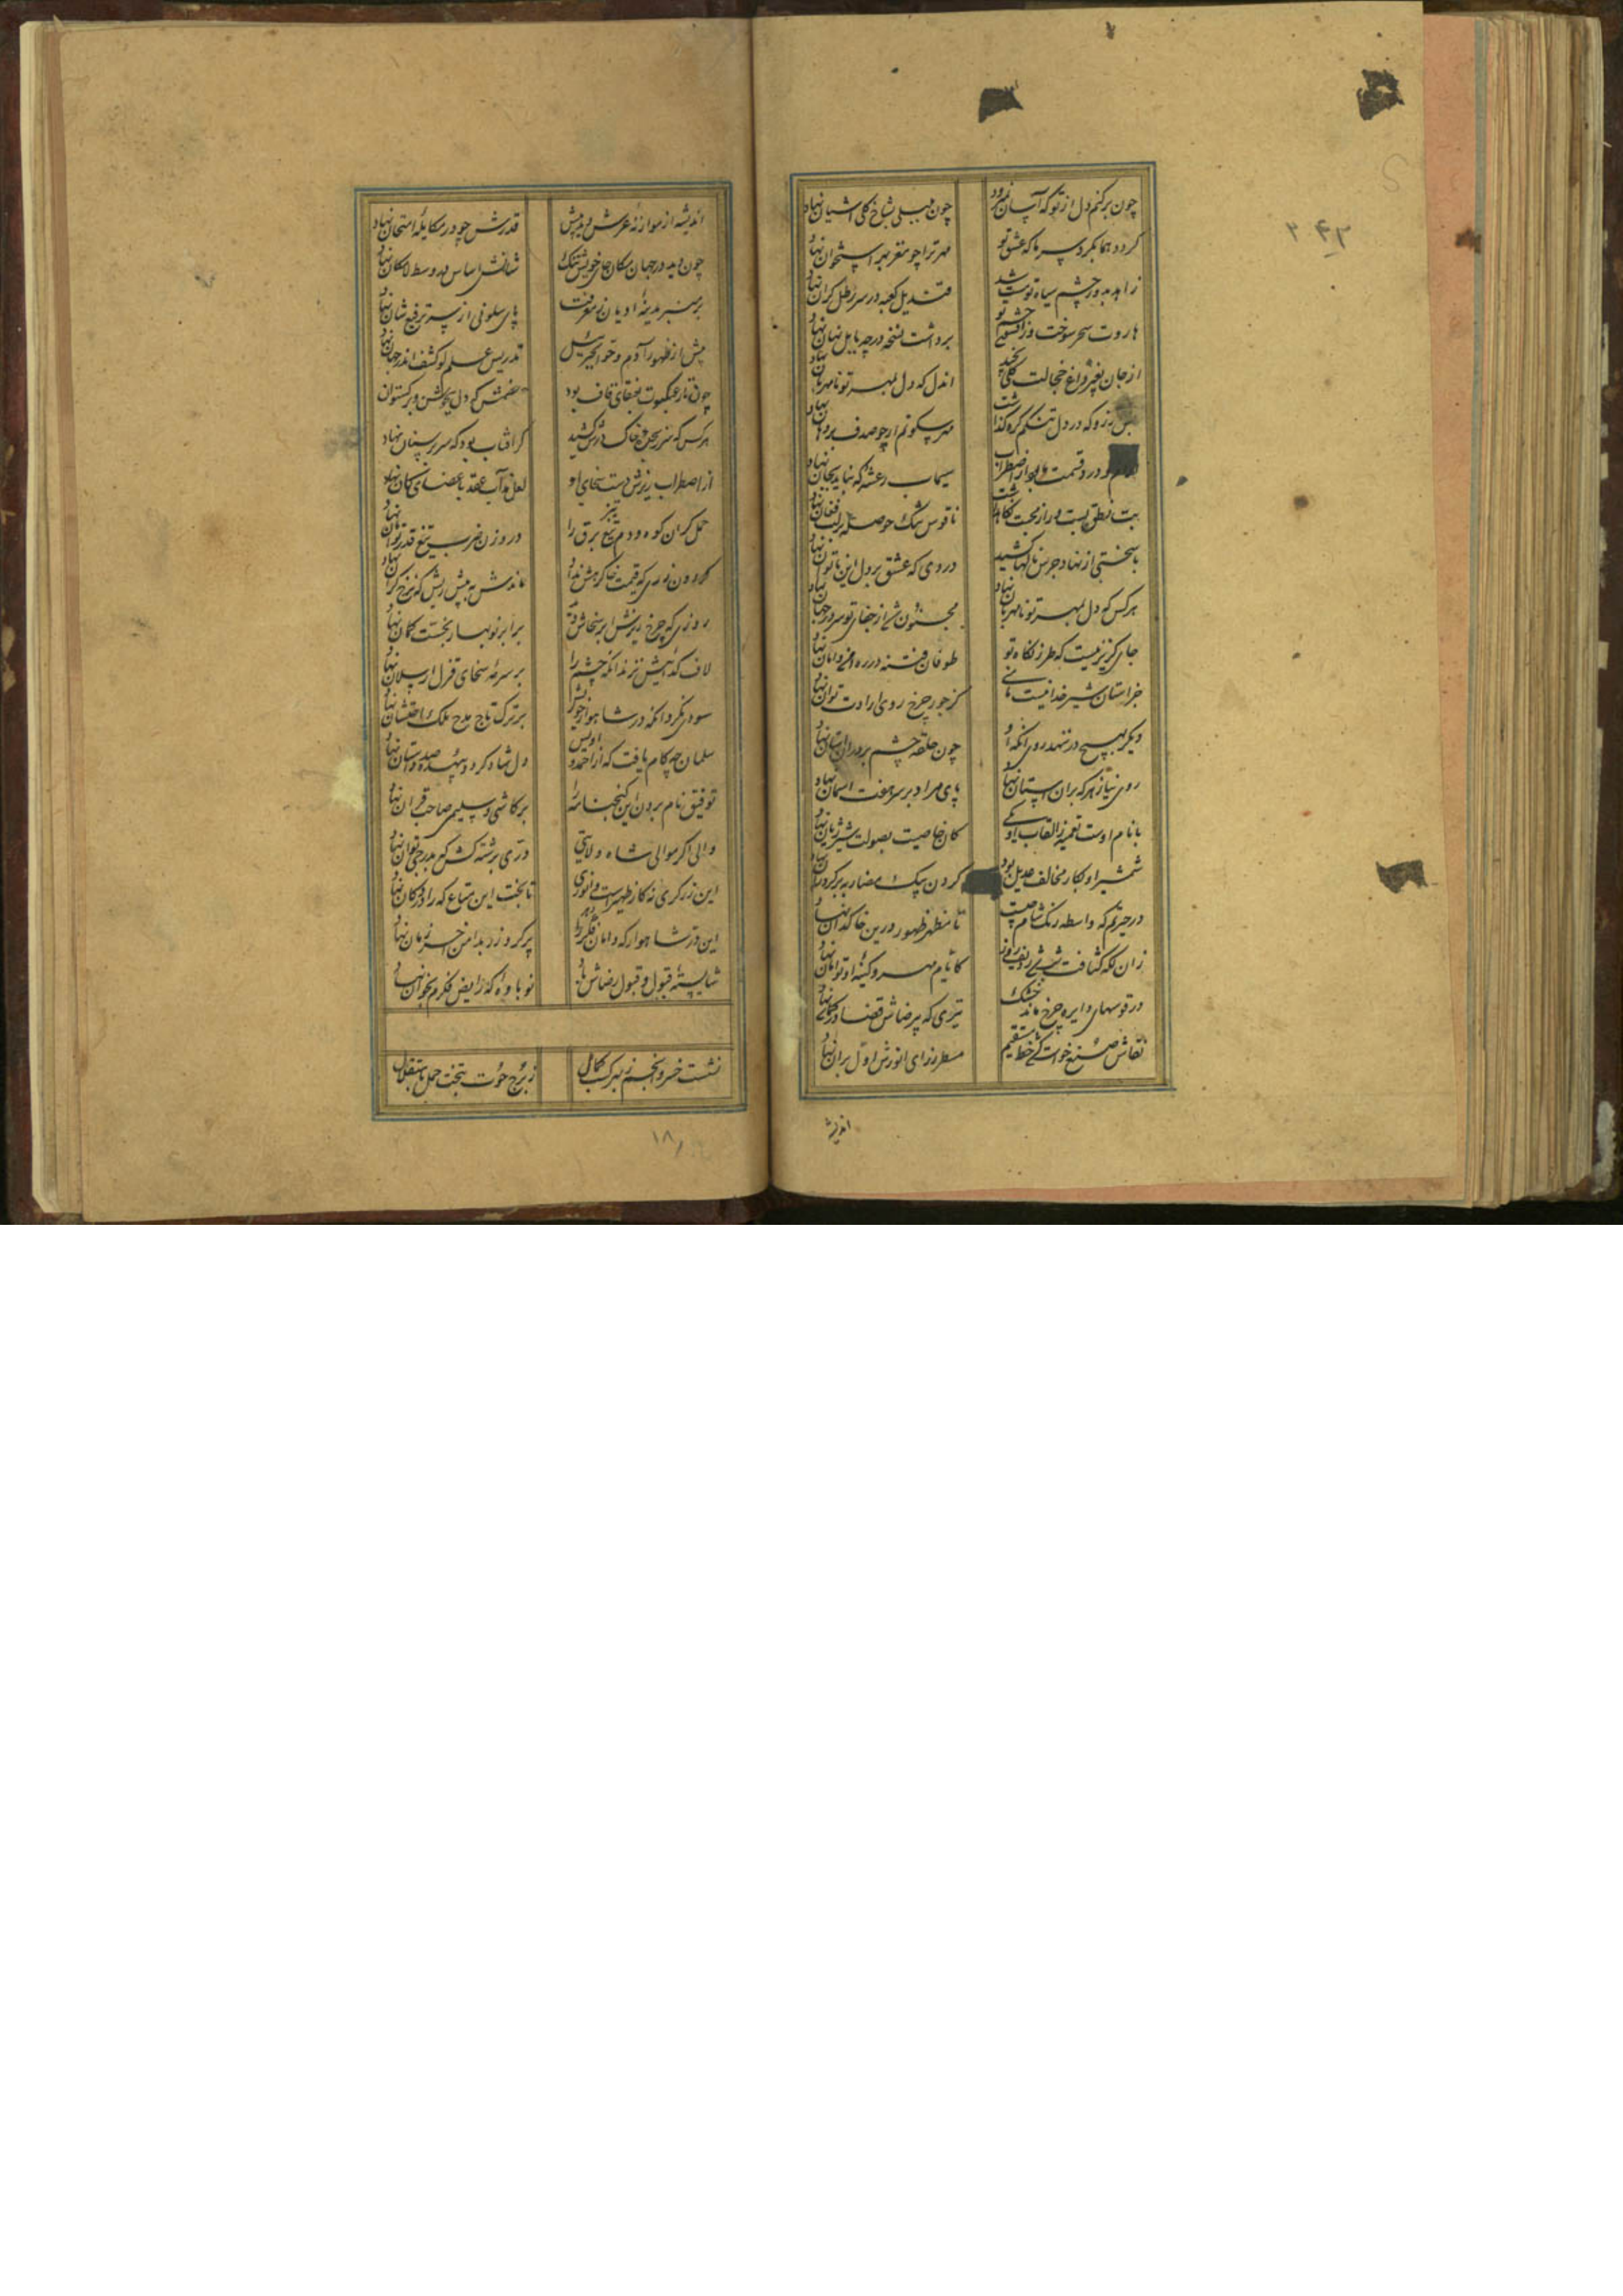 چون برکنم دل از تو که آسان نمی‌رود چون بلبلی بشاخ گلی آشیان نهاد
کردد هما بکرد سر ما که عشق تو مهر ترا چو مغز بهر استخوان نهاد
زاهد بدور چشم سیاه تو مست شد قندیل کعبه در سر رطل گران نهاد
هاروت سحر سوخت و ز افسون چشم تو برداشت نسخه در چه بابل نهان نهاد
از جان بغیر داغ خجالت گلی نچید اندل که دل بمهر تو نامهربان نهاد
در دل تنکم گره گذاشت مهر سکوتم ار چو صدف بر دهان نهاد
قسمت ما بود از اضطراب سیماب رعشه که نیاید بجان نهاد
بست نطق بست و راز محبت نگاه داشت ناقوس تنک حوصله بر لب فغان نهاد
با سختی از نهاد جرس نالها کشید دردی که عشق بر دل این ناتوان نهاد
هر کس که دل بمهر تو نامهربان نهاد مجنون شد از جفای تو سر در جهان نهاد
جای گریز نیست که طرز نگاه تو طوفان فتنه در ره امن و امان نهاد
جز آستان شیر خدا نیست مأمنی کز جور چرخ روی ارادت توان نهاد
دیگر بهیچ در ننهد روی آنکه او چون حلقه چشم بر در آن آستان نهاد
روی نیاز هر که بران آستان نهاد پای مراد بر سر هفت آسمان نهاد
با نام اوست تعمیه ز القاب او یکی کان خاصیت بصولت شیر ژیان نهاد
شمشیر او بکار مخالف عدیل بود گردن بیک مضاربه بر گردنان نهاد
در حیرتم که واسطه رنک شام چیست تا منظر ظهور درین خاکدان نهاد
کایام مهر و کینه او توامان نهاد
در قوسهای دایره چرخ ماند خشک تیری که بیرضاش قضا در کمان نهاد
نقاش صنع خواست کشد خط مستقیم مسطر ز رای انورش اول بران نهاد
اندیشه
اندیشه از موازنه عرش دید بیش قدرش چو در مکایله امتحان نهاد
چون دید در جهان مکان جای خویش تنک شانش اساس مهد وسط لامکان نهاد
بر منبر مدینه ادیان ز معرفت پای سلونی از سر ترفیع شان نهاد
پیش از ظهور آدم و حوا بجبرئیل تدریس علم لو کشف اندر جهان نهاد
چون تار عنکبوت بعنقای قاف بود خصمش که دل بجوشن و برگستوان نهاد
هر کس که سر بجیب خاک درش کشید گر آفتاب بود که سر بر سنان نهاد
از اضطراب ریزش دست سخای او لعل مذاب عقد باعضای کان نهاد
حمل گران کوه و دم تیغ تیز برق را در وزن ضرب تیغ قدر توان نهاد
گردون زری که قیمت خاک رهش نداد ماندش به پیش ریش که نرخ گران نهاد
روزی که چرخ ریزش ابر سخاش دید برابر نوبهار بخست گمان نهاد
لاف گداییش نزند آنکه چشم را بر سرمه سخای قزل ارسلان نهاد
سودی نکرد آنکه در شاهوار خویش بر ترک تاج مدح ملک اخستان نهاد
سلمان چه کام یافت که از احمد و اویس دل شاد کرد و سیصد و ده داستان نهاد
توفیق نام بردن این گنجنامه را بر کاشی و سلیمی صاحب قران نهاد
والی اگر موالی شاه ولایتی دری برشته کش که بدرجی توان نهاد
این زرگری نه کار ظهیرست و انوری تا بخت این متاع کرا در دکان نهاد
این در شاهوار که دامان فکر را پر کرد و زر بدامن آخر زمان نهاد
شایسته قبول و قبول رضاش باد نوباوه که رایض فکرم بخوان نهاد
نشست خسرو انجم ز بهر کسب کمال ز برج حوت بتخت حمل باستقلال